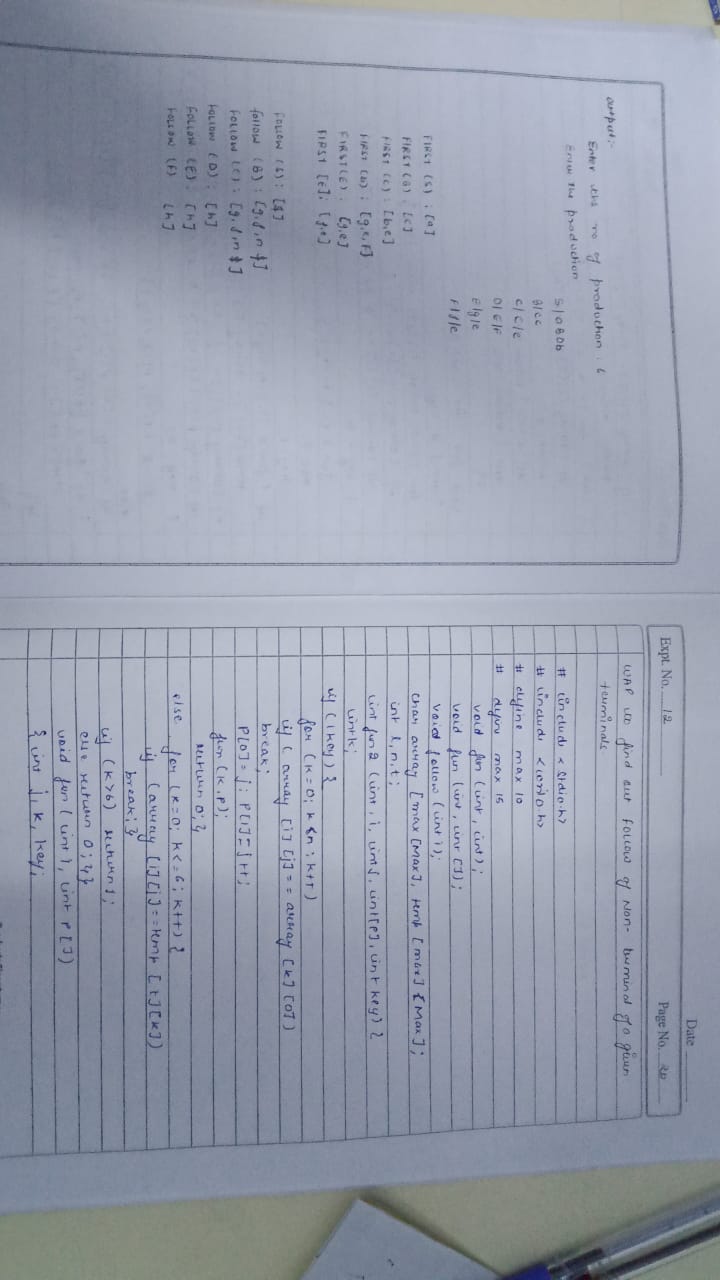 output:-
Enter the no of production : 6
Enter the production
S/aBDh
B/cC
C/bC/e
D/E/F
E/g/e
F/f/e
FIRST (S) : [a]
FIRST (B) : [c]
FIRST (C) : [b,e]
FIRST (D) : [g,e,F]
FIRST (E) : [g,e]
FIRST [F] : [f,e]
FOLLOW (S) : [$]
follow (B) : [g,f,n $]
FOLLOW (C) : [g,f,n $]
FOLLOW (D) : [h]
FOLLOW (E) : [h]
FOLLOW (F) [h]
Date
Expt. No. 12
Page No. 20
WAP to find out follow of Non- terminal of a given
terminals
# include < stdio.h>
# include <conio.h>
# define max 10
# define max 15
void fun (int, int);
void fun (int, int []);
void follow (int i);
char array [max [Max], temp [max] [Max];
int l, n, t;
int fun2 (int, i, int j, int [P], int key) {
int k;
if (!key) {
for (k=0; k<n; k++)
if ( array [i] [j] == array [k] [0])
break;
P[0] = j; P[1] = j++;
fun (k, p);
return 0; }
else for (k=0; k<=6; k++) {
if (array [i] [j] == temp [t] [k])
break; }
if (k>6) return 1;
else return 0; } }
void fun (int i, int P [])
{ int j, k, key;